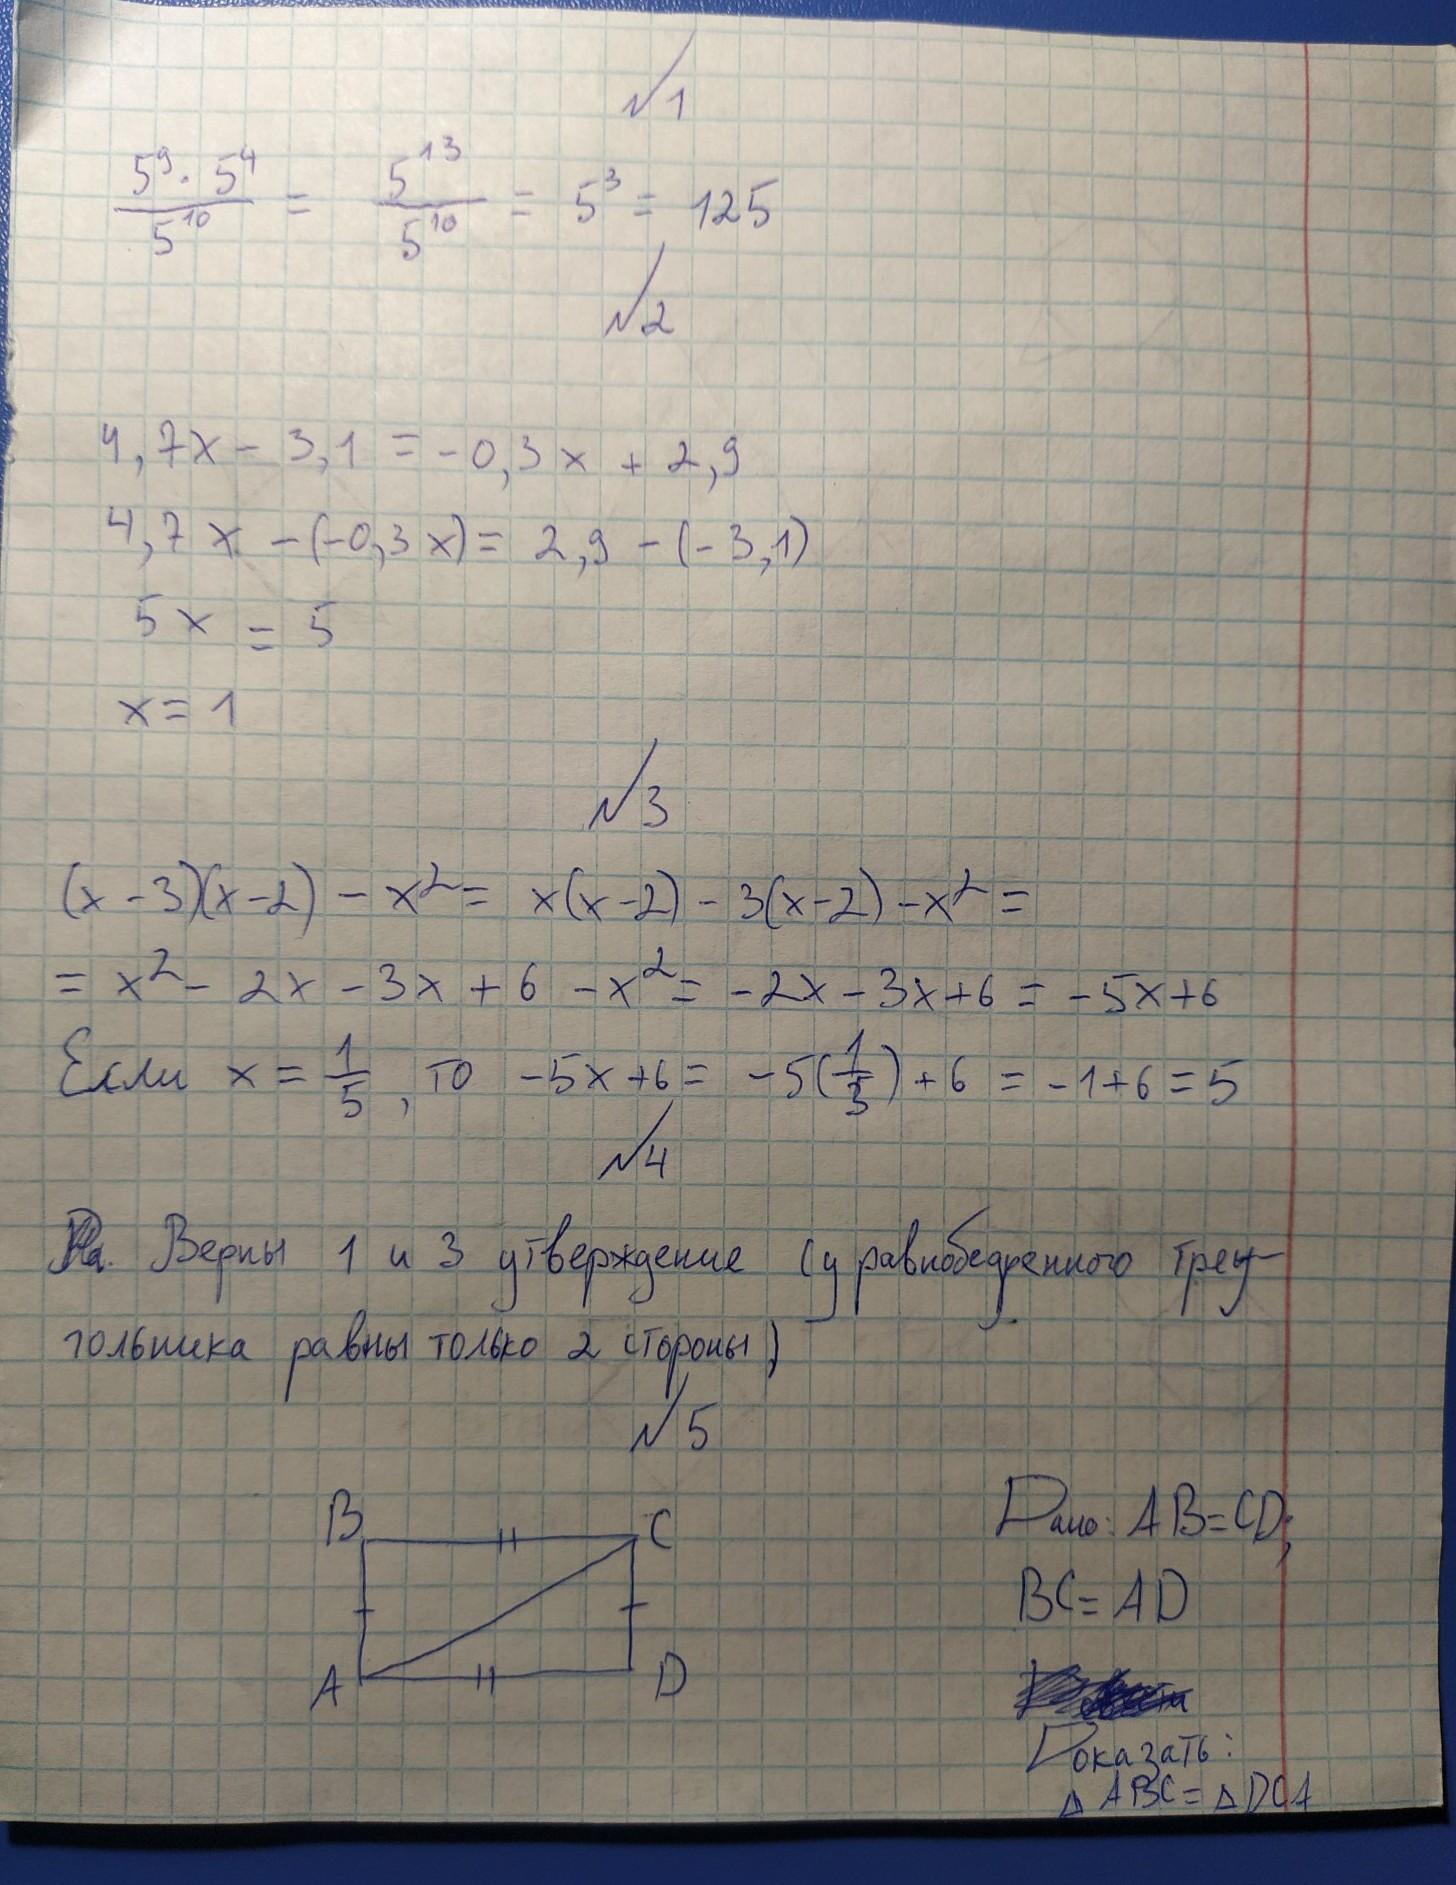 №1
5⁹ · 5⁴ / 5¹⁰ = 5¹³ / 5¹⁰ = 5³ = 125
№2
4,7x - 3,1 = -0,3x + 2,9
4,7x - (-0,3x) = 2,9 - (-3,1)
5x = 5
x = 1
№3
(x - 3)(x - 2) - x² = x(x - 2) - 3(x - 2) - x² =
= x² - 2x - 3x + 6 - x² = -2x - 3x + 6 = -5x + 6
Если x = 1/5, то -5x + 6 = -5(1/5) + 6 = -1 + 6 = 5
№4
Верны 1 и 3 утверждение (у равнобедренного треу-
гольника равны только 2 стороны)
№5
B C
A D
Дано: AB = CD;
BC = AD
Доказать:
△ ABC = △ DCA